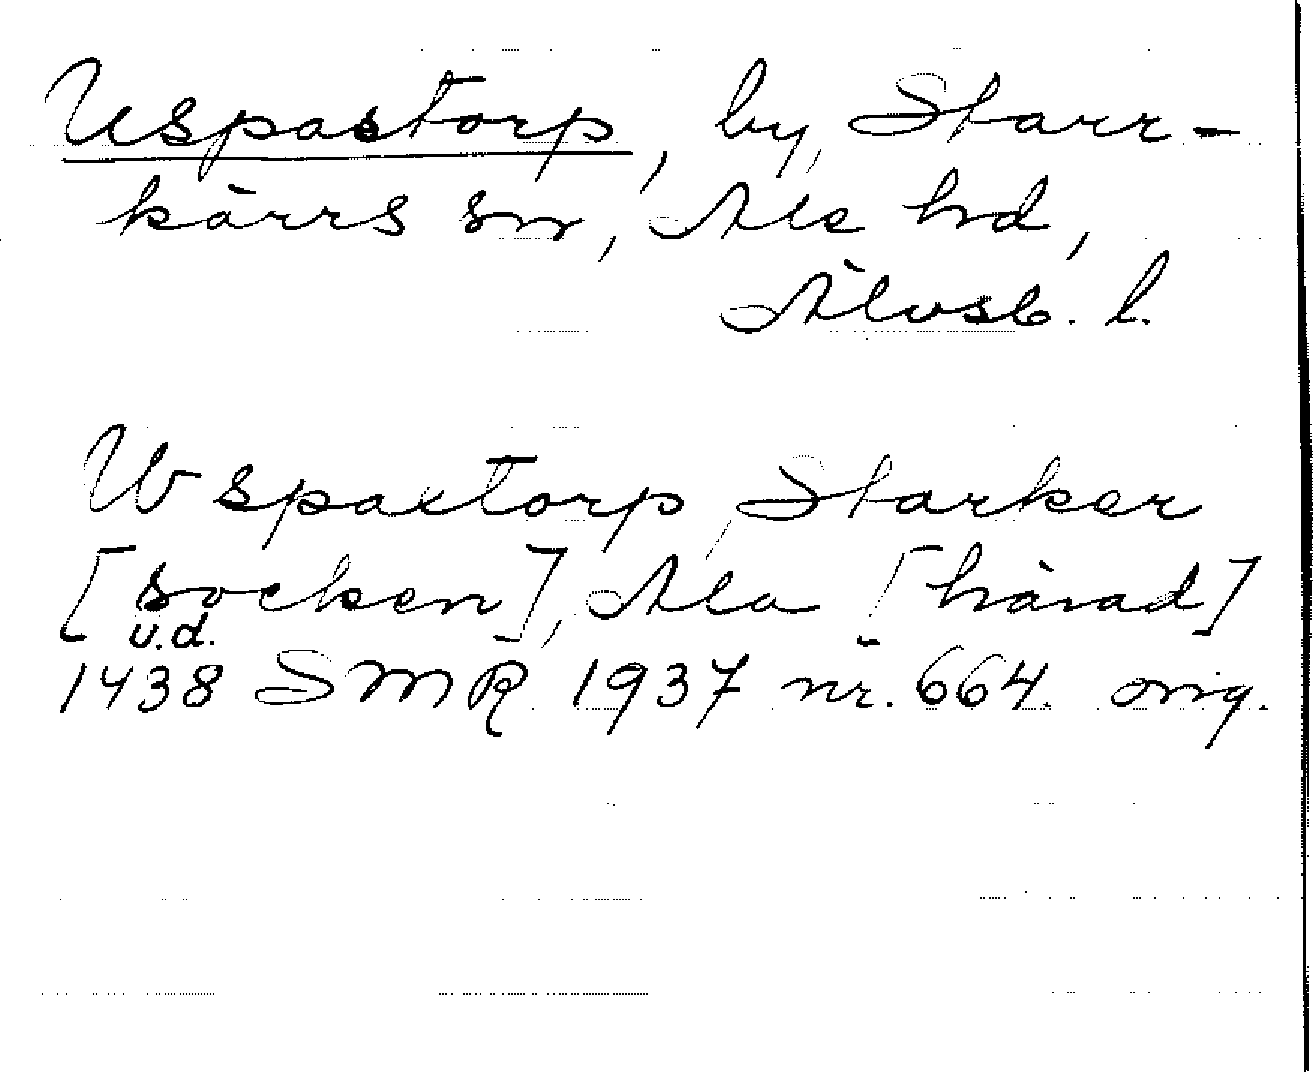 Uspastorp, by, Starr-
kärrs sn, Ale hd,
Älvsb. l.
Wspaxtorp, Starker
[socken], Ala [härad]
u.d.
1438 SMR 1937 nr. 664. orig.